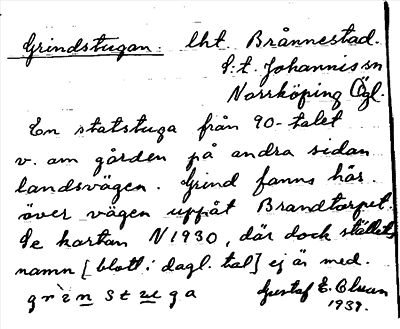 Grindstugan. lht Brånnestad.
S:t. Johannis sn
Norrköping Ögl.
En statstuga från 90-talet
v. om gården på andra sidan
landsvägen. Grind fanns här
över vägen uppåt Brandtorpet.
Se kartan N 1930, där dock ställets
namn [blott i dagl. tal] ej är med.
grìnstuga Gustaf E. Olsson
1939.